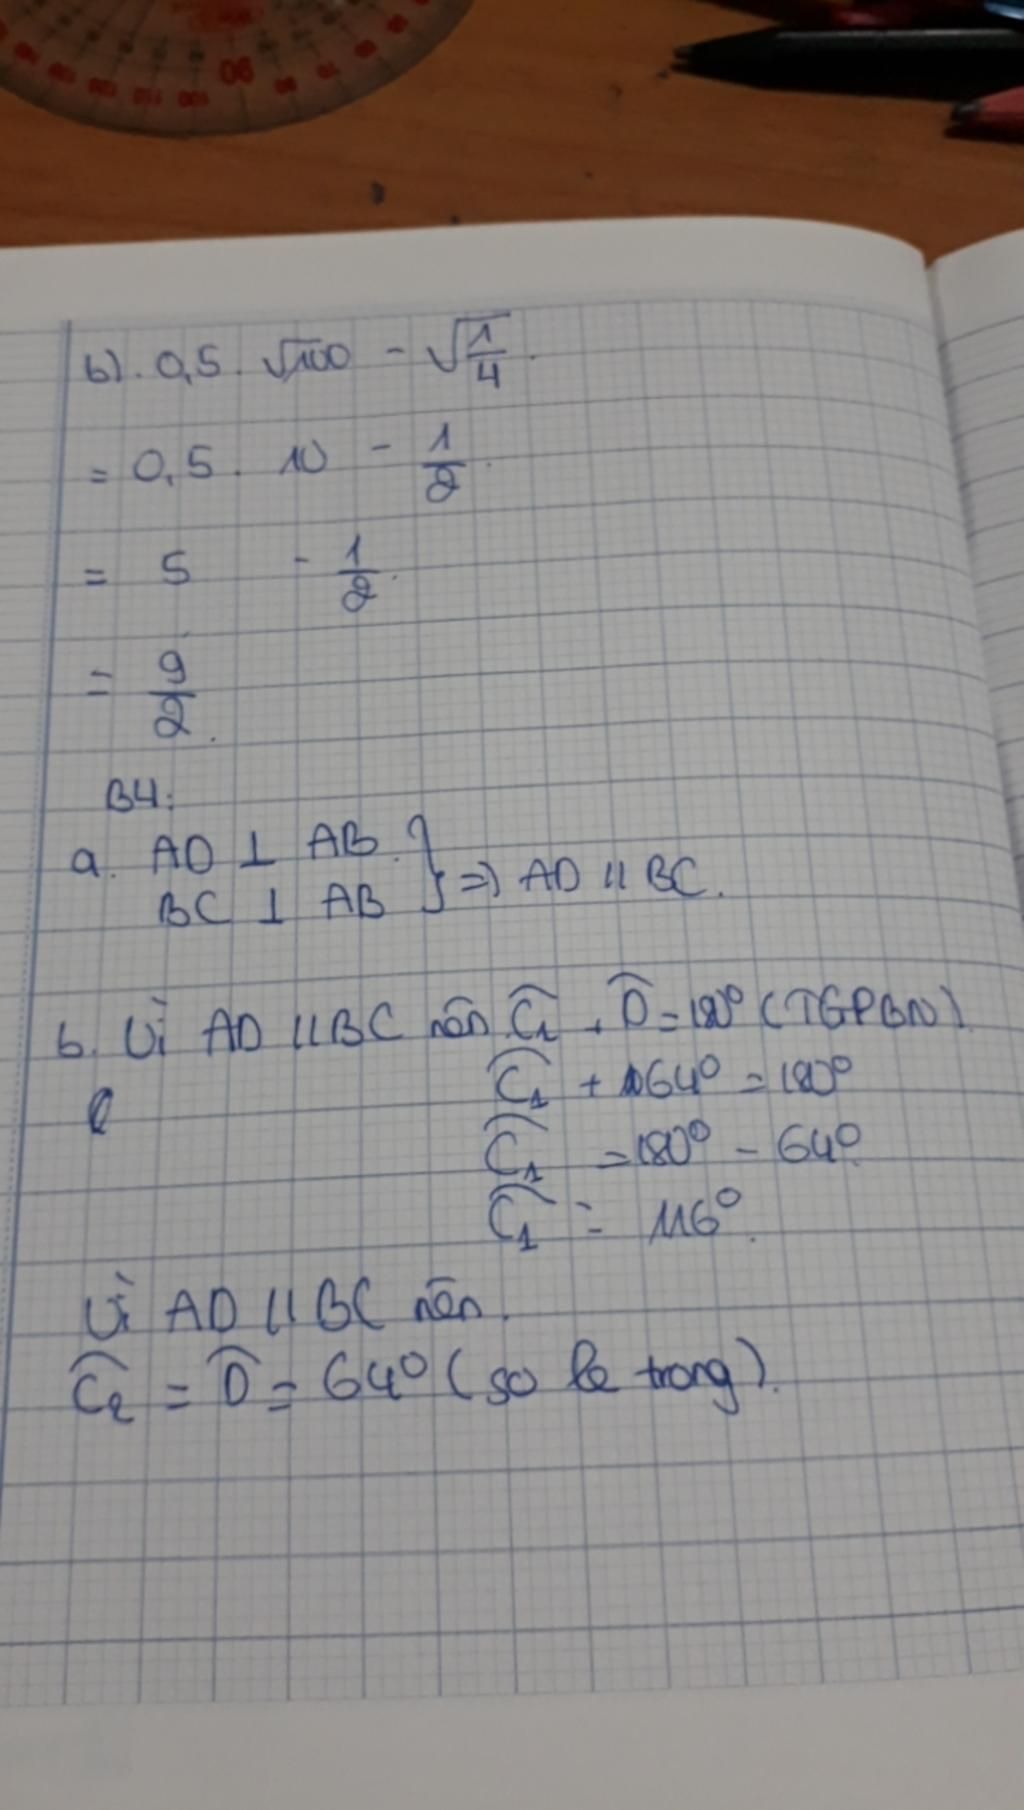 90
b). 0,5 . √100 - √1/4 .
= 0,5 . 10 - 1/2 .
= 5 - 1/2 .
= 9/2 .
B4:
a. AD ⊥ AB.
BC ⊥ AB } => AD // BC.
b. Vì AD // BC nên Ĉ₁ + D̂ = 180° (TGPBN)
Ĉ₁ + 64° = 180°
Ĉ₁ = 180° - 64°
Ĉ₁ = 116°.
Vì AD // BC nên.
Ĉ₂ = D̂ = 64° (so le trong).